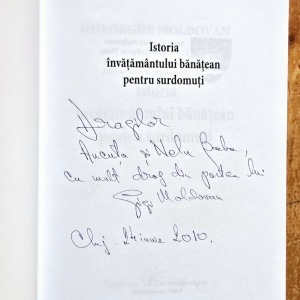 GHEORGHE MOLDOVAN
Istoria
învățământului bănățean
pentru surdomuți
Dragilor
Ancuța și Nelu Baba,
cu mult drag din partea lui
Gigi Moldovan
Cluj. 24 iunie 2010.